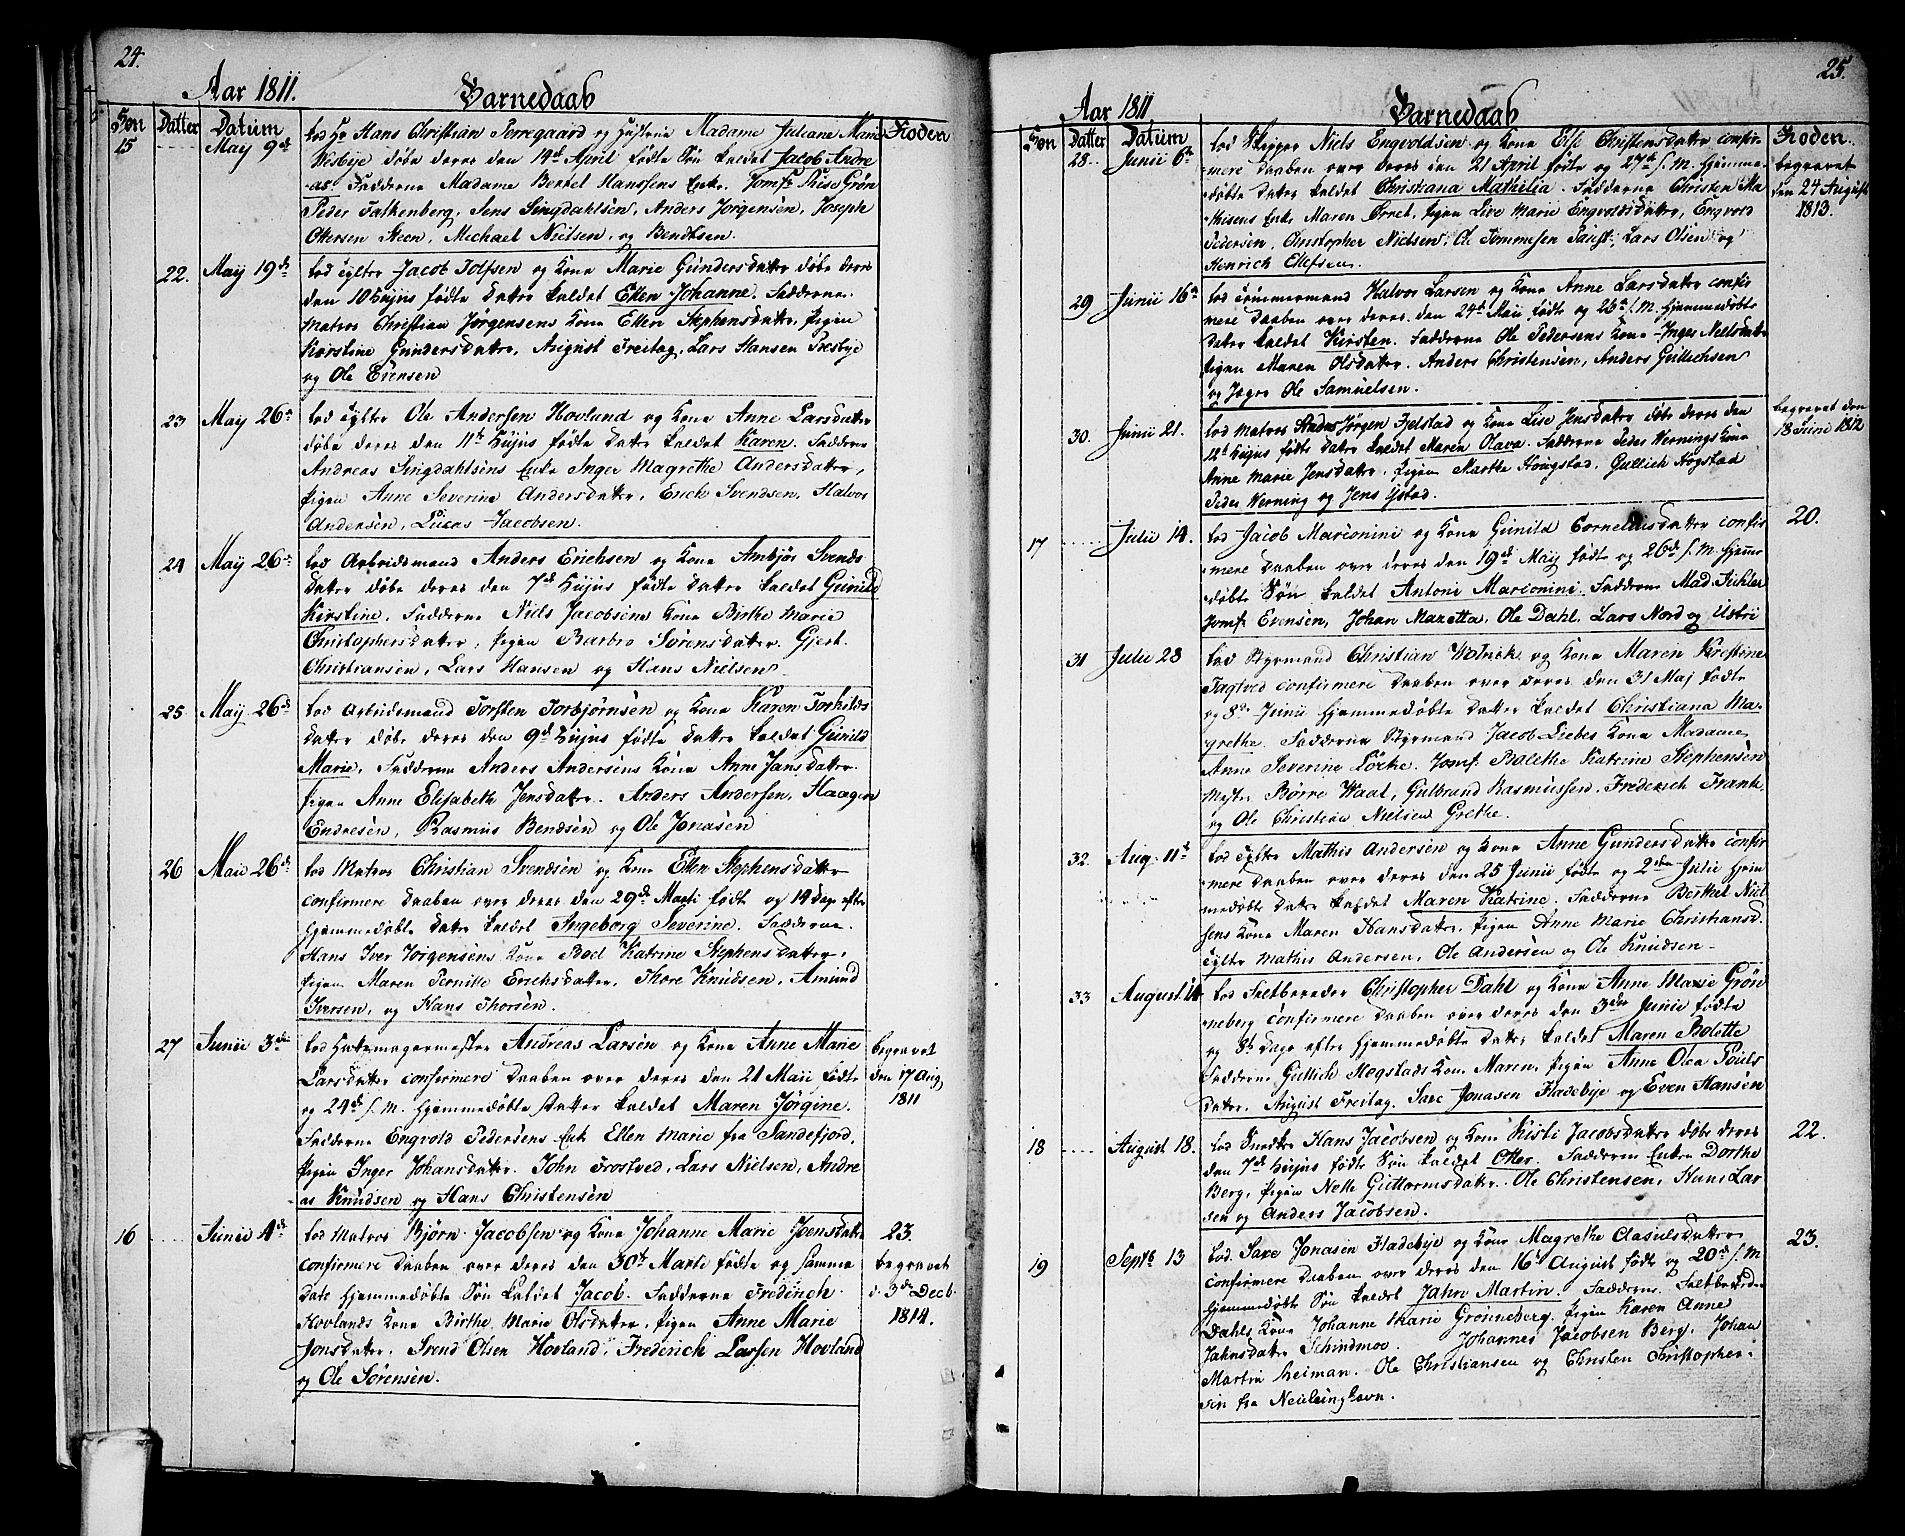 24.
Aar 1811. Barnedaab
Søn Datter Datum Koden
15 May 9de lod Hr Hans Christian Terregaard og Hustrue Madame Juliane Marie
Wisbye døbe deres den 14de April fødte Søn kaldet Jacob Andre
as. Fadderne Madame Bertel Hanssens Enke, Jomfr. Grøn
Peder Falkenberg, Jens Singdahlsen, Anders Jørgensen, Joseph
Ottersen Steen, Michael Nielsen, og Bendtsen.
22. May 19de lod Jacob Tolfsen og Kone Marie Gundersdatter døbe deres
den 10 Hujus fødte Datter kaldet Ellen Johanne. Fadderne
Matros Christian Jørgensens Kone Ellen Stephensdatter, Pigen
Kirstine Gundersdatter, August Freitag, Lars Hansen Præsbye
og Ole Evensen
23 May 26de lod Ole Andersen Hovland og Kone Anne Larsdatter
døbe deres den 11te Hujus fødte Datter kaldet Karen. Fadderne
Andreas Singdahlsens Enke Inger Magrethe Andersdatter,
Pigen Anne Severine Andersdatter, Erich Svendsen, Halvor
Andersen, Lucas Jacobsen.
24 May 26de lod Arbeidsmand Anders Erichsen og Kone Ambjør Svends
datter døbe deres den 7de Hujus fødte Datter kaldet Gunild
Kirstine, Fadderne Niels Jacobsens Kone Birthe Marie
Christophersdatter, Pigen Barbro Sørensdatter, Gjert
Christiansen, Lars Hansen og Hans Nielsen
25 May 26de lod Arbeidsmand Torsten Torbjørnsen og Kone Karen Torkilds
datter døbe deres den 9de Hujus fødte Datter kaldet Gunild
Marie, Fadderne Anders Andersens Kone Anne Jansdatter.
Pigen Anne Elisabeth Jensdatter. Anders Andersen, Haagen
Endresen, Rasmus Bendsen og Ole Jonasen
26 Maii 26de lod Matros Christian Svendsen og Kone Ellen Stephensdatter
confirmere Daaben over deres den 29de Marti født og 14 Dage efter
hjemmedøbte Datter kaldet Ingeborg Severine. Fadderne
Hans Iver Jørgensens Kone Boel Katrine Stephensdatter,
Pigen Maren Pernille Erichsdatter, Thore Knudsen, Amund
Iversen, og Hans Thorsen.
27 Junii 3die lod Andreas Larsen og Kone Anne Marie begravet
Larsdatter confirmere Daaben over deres den 21 Maii fødte den 17 Aug
og 24de s. M. hjemmedøbte Datter kaldet Maren Jørgine. 1811
Fadderne Engvold Pedersens Enk Ellen Marie fra Sandefjord,
Pigen Inger Johansdatter. John Trostved, Lars Nielsen, Andre
as Knudsen og Hans Christensen
16 Junii 4de lod Matros Bjørn Jacobsen og Kone Johanne Marie Joensdatter 23.
confirmere Daaben over deres den 30te Marti fødte og samme begravet
Date hjemmedøbte Søn kaldet Jacob. Fadderne Fredirich d. 3de Decb.
Hovlands Kone Birthe Marie Olsdatter, Pigen Anne Marie 1814.
Jonsdatter, Svend Olsen Hovland, Frederich Larsen Hovland
og Ole Sørensen.
25.
Aar 1811 Barnedaab
Søn Datter Datum Koden
28 Junii 6te lod Skipper Niels Engvoldsen og Kone Else Christensdatter confir- begravet
mere Daaben over deres den 21 April fødte og 27de s. M. hjemme- den 24 August
døbte Datter kaldet Christiana Mathilia. Fadderne Christen Ma 1813.
thisens Enke Maren Ørnet, Pigen Live Marie Engvoldsdatter, Engvold
Pedersen, Christopher Nielsen, Ole Tommesen Faust, Lars Olsen og
Henrich Ellefsen.
29 Junii 16de lod Tømmermand Halvor Larsen og Kone Anne Larsdatter confir
mere Daaben over deres den 24de Maii fødte og 25de s. M. hjemmedøbte
Datter kaldet Kirsten. Fadderne Ole Pedersens Kone Inger Nielsdatter
Pigen Maren Olsdatter. Anders Christensen, Anders Gullichsen
og Ole Samuelsen.
30. Junii 21. lod Matros Jørgen Fjelstad og Kone Lise Jensdatter døbe deres den begravet den
12te Hujus fødte Datter kaldet Maren Olava. Fadderne Peder Wernings Kone 18 Juni 1812
Anne Marie Jensdatter, Pigen Marthe Hougstad, Gullich Hogstad
Peder Werning og Jens Ystad.
17 Julii 14. lod Jacob Marionini og Kone Gunild Corneliusdatter confir 20.
mere Daaben over deres den 19de May født og 26de s. M. hjemme
døbte Søn kaldet Antoni Marionini. Fadderne Mad. Sichler
Jomf. Evensen, Johan Mazetta, Ole Dahl, Lars Nord og Ustri
31 Julii 28 lod Styrmand Christian Wolrick og Kone Maren Kirstine
Tagtved confirmere Daaben over deres den 31 Maj fødte
og 8de Junii hjemmedøbte Datter kaldet Christiana Ma-
grethe. Fadderne Styrmand Jacob Liebes Kone Madame
Anne Severine Løcke. Jomf. Bolethe Katrine Stephensen
Børre Waal, Gulbrand Rasmussen, Frederich Frank
og Ole Christian Nielsen Grethe.
32. Aug. 11te lod Mathis Andersen og Kone Anne Gundersdatter confir
mere Daaben over deres den 25 Junii fødte og 2den Julii hjem
medøbte Datter kaldet Maren Katrine. Fadderne Berthel Niel
sens Kone Maren Hansdatter, Pigen Anne Marie Christiansd.
Mathis Andersen, Ole Andersen og Ole Knudsen
33 August lod Saltbereder Christopher Dahl og Kone Anne Marie Grøn
neberg confirmere Daaben over deres den 3die Junii fødte
og 8te Dage efter hjemmedøbte Datter kaldet Maren Bolette
Fadderne Gullich Hogstads Kone Maren, Pigen Anne Olea Pouls
datter. August Freitag. Saxe Jonasen Hadebye og Even Hansen
18 August 18. lod Snedker Hans Jacobsen og Kone Kisti Jacobsdatter døbe deres 22.
den 7de Hujus fødte Søn kaldet Otter. Fadderne Enken Dorthe
Berg, Pigen Nelle Guttormsdatter. Ole Christensen, Hans Lar
sen og Anders Jacobsen.
19 Septb 13 lod Saxe Jonasen Hadebye og Kone Magrethe Clasusdatter 23.
confirmere Daaben over deres den 16de August født og 20de s. M
hjemmedøbte Søn kaldet Jahn Martin. Fadderne Saltbereder
Dahls Kone Johanne Marie Grønneberg. Pigen Karen Anne
Jahnsdatter Schindmoe. Johannes Jacobsen Berg. Johan
Martin Reiman. Ole Christiansen og Christen Christopher-
sen fra